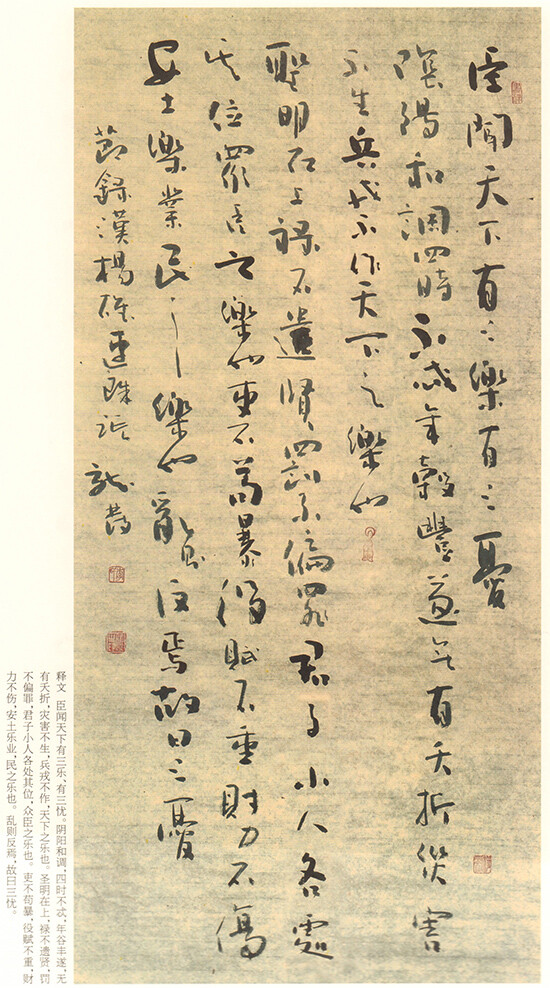 臣聞天下有三樂有三憂
陰陽和調四時不忒年穀豐遂無有夭折災害
不生兵戎不作天下之樂也
聖明在上祿不遺賢罰不偏罪君子小人各處
其位眾臣之樂也吏不苟暴役賦不重財力不傷
安土樂業民之樂也亂則反焉故曰三憂
節錄漢揚雄連珠
释文 臣闻天下有三乐、有三忧。阴阳和调,四时不忒,年谷丰遂,无
有夭折,灾害不生,兵戎不作,天下之乐也。圣明在上,禄不遗贤,罚
不偏罪,君子小人各处其位,众臣之乐也。吏不苟暴,役赋不重,财
力不伤,安土乐业,民之乐也。乱则反焉,故曰三忧。